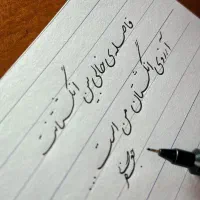 فاصله‌ی خالی بین انگشتانت
آرزوی انگشتان من است...